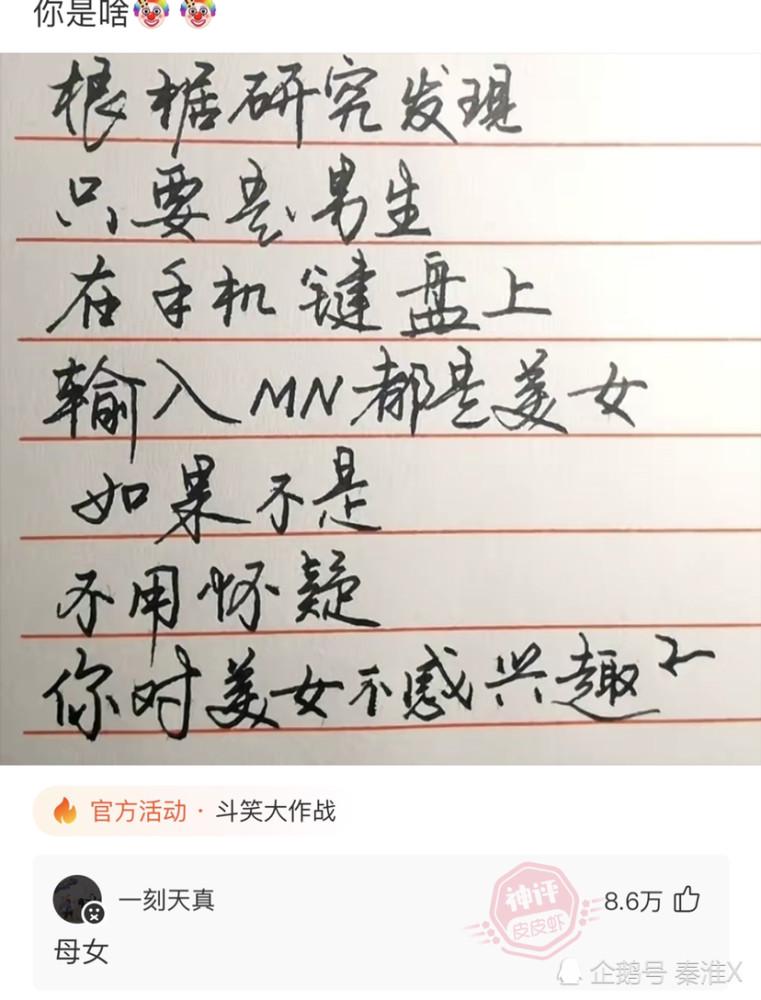 你是啥🤡🤡
根据研究发现
只要是男生
在手机键盘上
输入MN都是美女
如果不是
不用怀疑
你对美女不感兴趣
官方活动·斗笑大作战
一刻天真
神评
皮皮虾
8.6万
母女
企鹅号 秦淮X